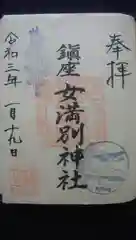 奉拝
鎮座 女満別神社
令和三年 一月十九日